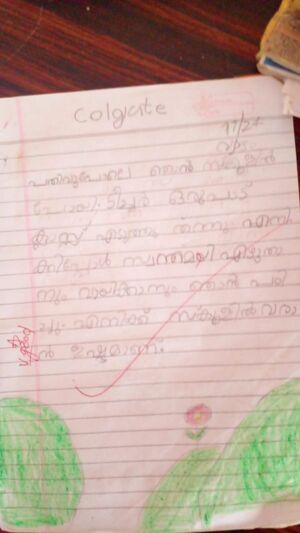 Colgate
11/2+
പതിവുപോലെ ഞാൻ സ്കൂളിൽ
പോയി. ടീച്ചർ ഒരുപാട്
ക്ലാസ്സ് എടുത്തു തന്നു. എനി
ക്കിപ്പോൾ സ്വന്തമായി എഴുതാ
നും വായിക്കാനും ഞാൻ പഠി
ച്ചു. എനിക്ക് സ്കൂളിൽ വരാ
ൻ ഇഷ്ടമാണ്.